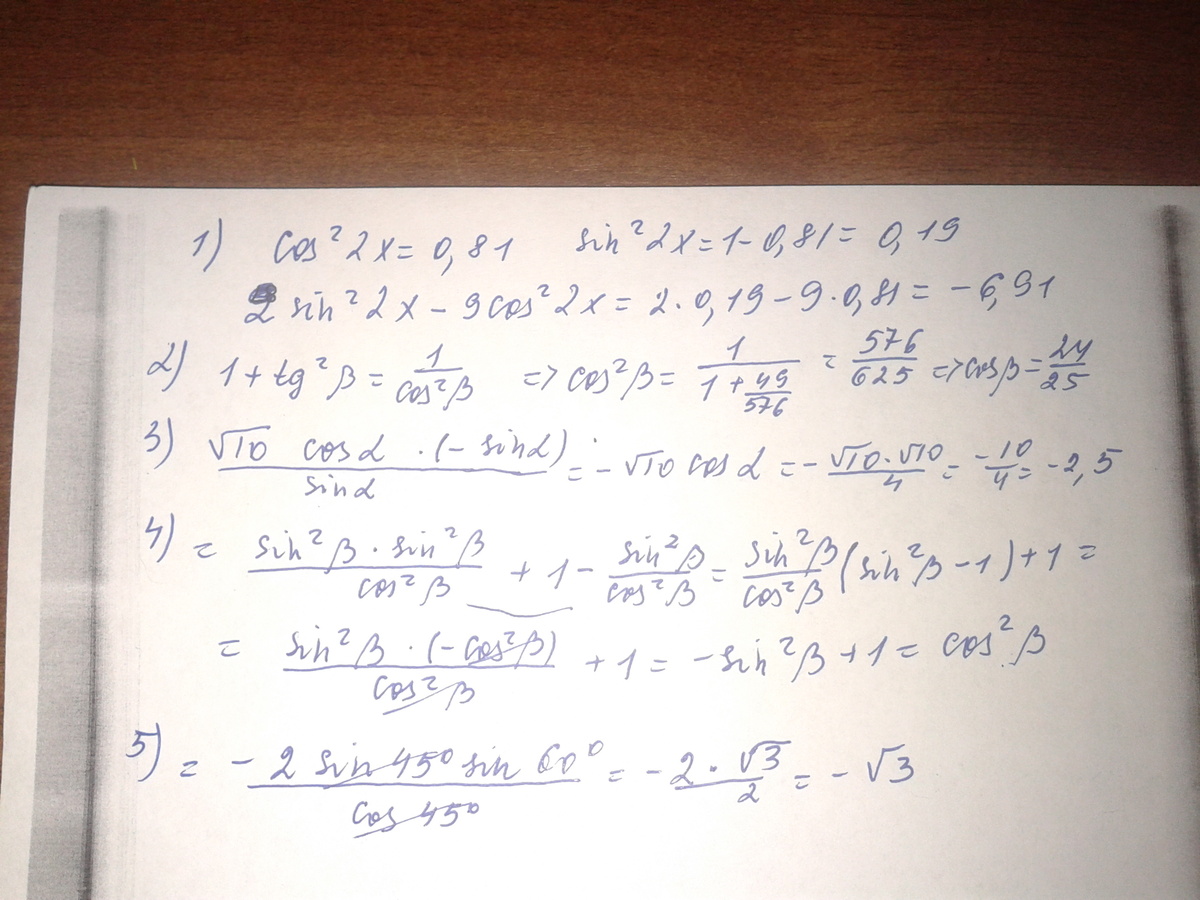 1) cos² 2x = 0,81 sin² 2x = 1 - 0,81 = 0,19
2 sin² 2x - 9 cos² 2x = 2 · 0,19 - 9 · 0,81 = - 6,91
2) 1 + tg² β = 1/cos² β => cos² β = 1/(1 + 49/576) = 576/625 => cos β = 24/25
3) √10 cos α · (- sin α)/sin α = - √10 cos α = - √10 · √10/4 = -10/4 = -2,5
4) = sin² β · sin² β/cos² β + 1 - sin² β/cos² β = sin² β/cos² β (sin² β - 1) + 1 =
= sin² β · (-cos² β)/cos² β + 1 = - sin² β + 1 = cos² β
5) = - 2 sin 45° sin 60°/cos 45° = - 2 · √3/2 = - √3